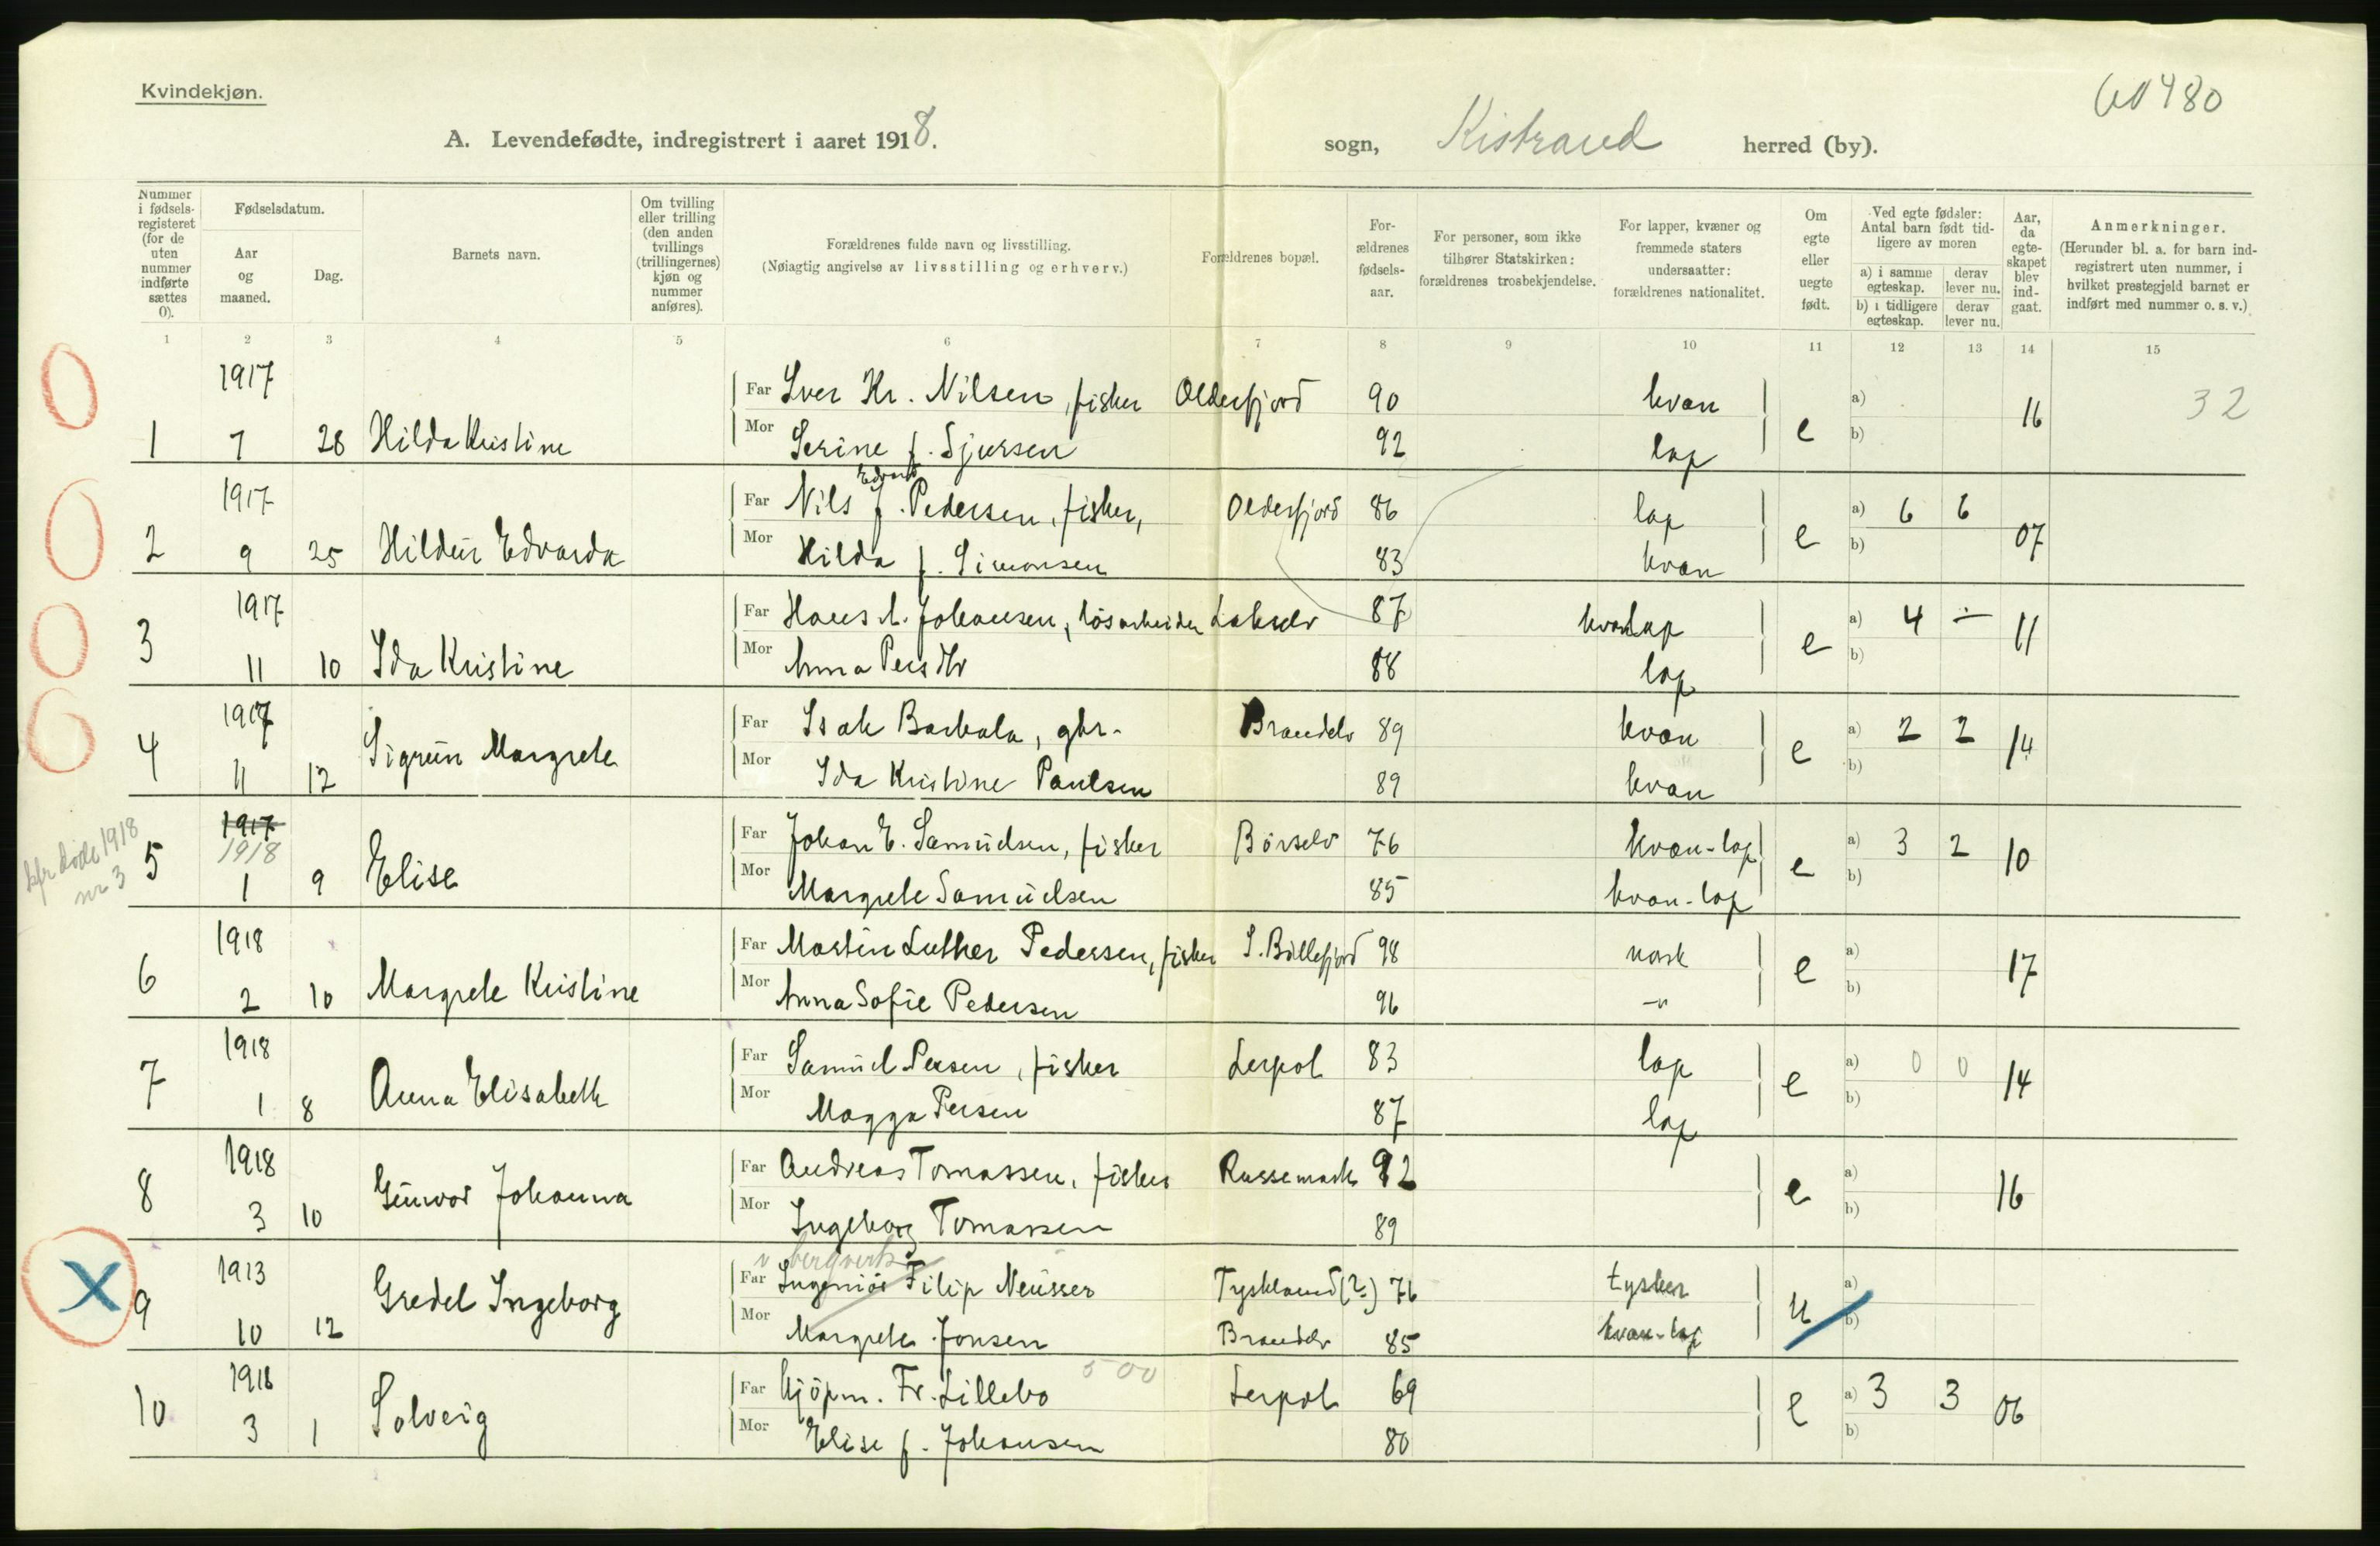 Kvindekjøn.
A. Levendefødte, indregistrert i aaret 1918.
sogn, Kistrand herred (by).
Nummer i fødsels-registeret (for de uten nummer indførte sættes 0).
Fødselsdatum.
Aar og maaned.
Dag.
Barnets navn.
Om tvilling eller trilling (den anden tvillings (trillingernes) kjøn og nummer anføres).
Forældrenes fulde navn og livsstilling.
(Nøiagtig angivelse av livsstilling og erhverv.)
Forældrenes bopæl.
For-ældrenes fødsels-aar.
For personer, som ikke tilhører Statskirken: forældrenes trosbekjendelse.
For lapper, kvæner og fremmede staters undersaatter: forældrenes nationalitet.
Om egte eller uegte født.
Ved egte fødsler: Antal barn født tid-ligere av moren
a) i samme egteskap. derav lever nu.
b) i tidligere egteskap. derav lever nu.
Aar, da egte-skapet blev ind-gaat.
Anmerkninger.
(Herunder bl. a. for barn ind-registrert uten nummer, i hvilket prestegjeld barnet er indført med nummer o. s. v.)
1 2 3 4 5 6 7 8 9 10 11 12 13 14 15
0
1917
Far Iver Kr. Nilsen, fisker Olderfjord 90 kvæn a) 16 32
1 7 28 Hilda Kristine Mor Serine f. Sjursen 92 lap e b)
0
1917 Edvard
Far Nils J. Pedersen, fisker, Olderfjord 86 lap a) 6 6 07
2 9 25 Hildur Edvarda Mor Hilda f. Simonsen 83 kvæn e b)
0
1917
Far Hans A. Johansen, løsarbeider Lakselv 87 kvæn lap a) 4 – 11
3 11 10 Ida Kristine Mor Anna Persdtr 88 lap e b)
0
1917
Far Isak Barbala, gbr. Brændelv 89 kvæn a) 2 2 14
4 11 12 Sigrun Margrete Mor Ida Kristine Paulsen 89 kvæn e b)
kfr døde 1918 nr 3
1917
1918
Far Johan E. Samuelsen, fisker Børselv 76 kvæn-lap a) 3 2 10
5 1 9 Elise Mor Margrete Samuelsen 85 kvæn-lap e b)
1918
Far Martin Luther Pedersen, fisker S. Billefjord 98 norsk a) 17
6 2 10 Margrete Kristine Mor Anna Sofie Pedersen 96 –"– e b)
1918
Far Samuel Persen, fisker Lerpol 83 lap a) 0 0 14
7 1 8 Anna Elisabeth Mor Magga Persen 87 lap e b)
1918
Far Andreas Tomassen, fisker Russemark 92 a) 16
8 3 10 Gunvor Johanna Mor Ingeborg Tomassen 89 e b)
X
1913 v bergverk
Far Ingeniør Filip Neusser Tyskland (?) 76 tysker a)
9 10 12 Gredel Ingeborg Mor Margrete Jonsen Brændelv 85 kvæn-lap u b)
500
1918
Far Kjøpm. Fr. Lillebo Lerpol 69 a) 3 3 06
10 3 1 Solveig Mor Elise f. Johansen 80 e b)